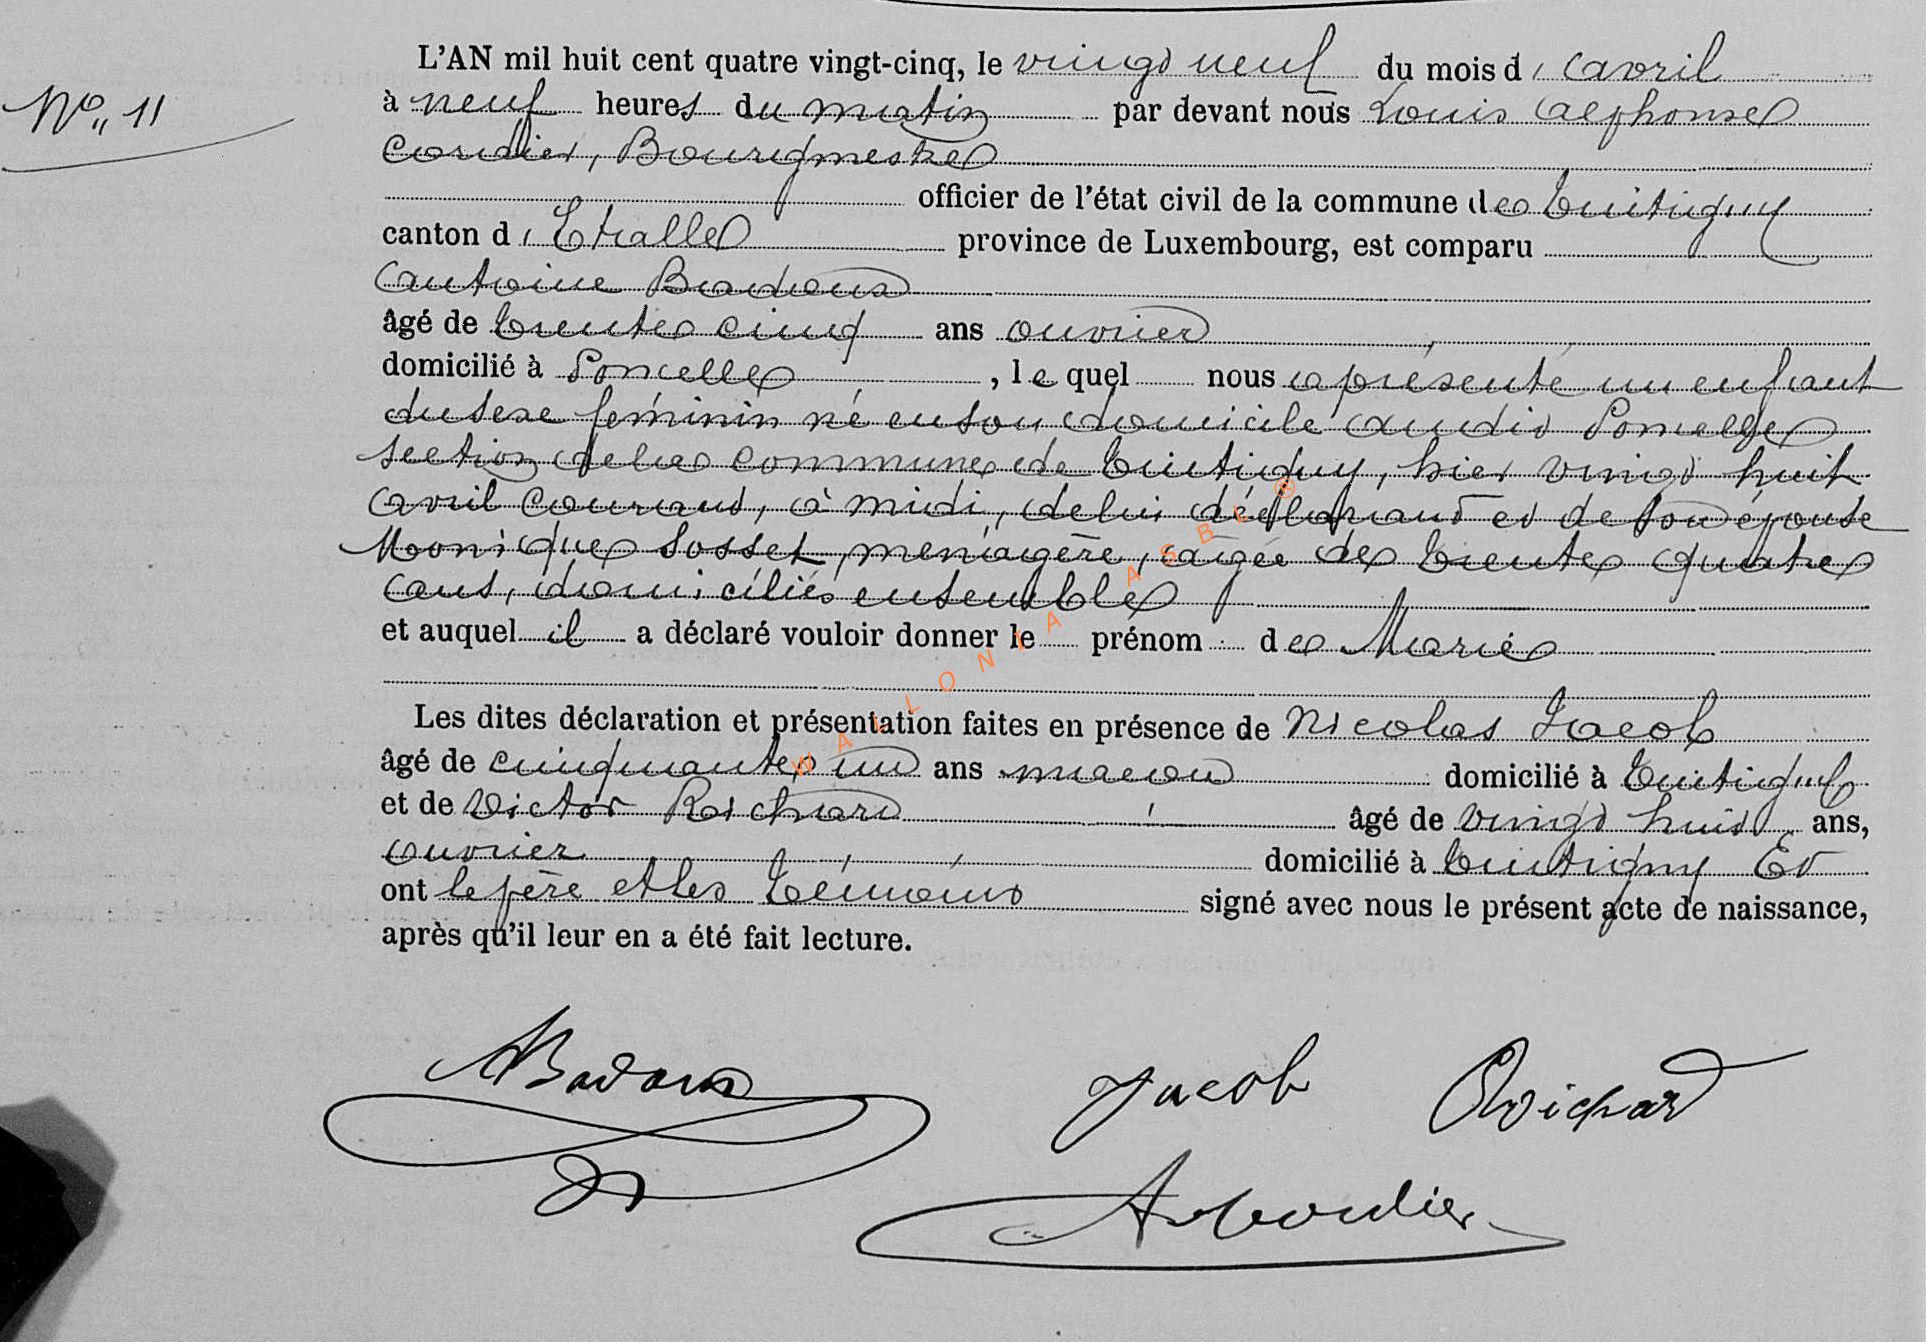 L'AN mil huit cent quatre vingt-cinq, le vingt neuf du mois d'avril
N° 11
à neuf heures du matin par devant nous Louis Alphonse
Cordier, Bourgmestre
officier de l'état civil de la commune de Tintigny
canton d'Etalle province de Luxembourg, est comparu
Antoine Badoux
âgé de trente cinq ans ouvrier
domicilié à Poncelle, lequel nous a présenté un enfant
du sexe féminin né en son domicile audit Poncelle
section de la commune de Tintigny, hier vingt huit
avril courant, à midi, de lui déclarant et de son épouse
Monique Sosset, ménagère, agée de trente quatre
ans, domiciliés ensemble
et auquel il a déclaré vouloir donner le prénom de Marie
Les dites déclaration et présentation faites en présence de Nicolas Jacob
âgé de cinquante un ans macon domicilié à Tintigny
et de Victor Roichard âgé de vingt huit ans,
ouvrier domicilié à Tintigny Et
ont le père et les témoins signé avec nous le présent acte de naissance,
après qu'il leur en a été fait lecture.
ABadoux Jacob VRoichard
Cordier
WALLONIA ASBL ®